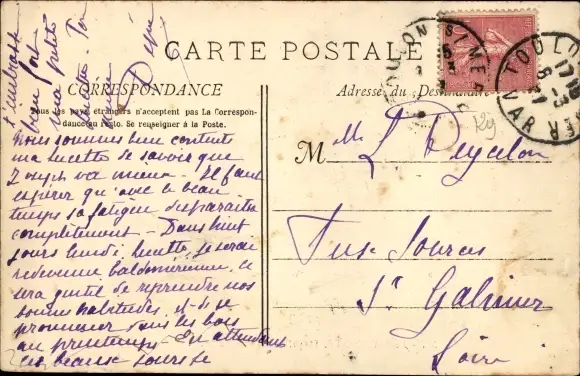 CARTE POSTALE
CORRESPONDANCE
Tous les pays étrangers n'acceptent pas la Correspon-
dance au recto. Se renseigner à la Poste.
Nous sommes bien contents
ma Lucette de savoir que
va mieux. Il faut
espérer qu'avec le beau
temps sa fatigue disparaîtra
complètement - Dans huit
jours lundi, Lucette, je serai
redevenue baldomérienne, ce
sera gentil de reprendre nos
bonnes habitudes, et de se
promener dans les bois
au printemps - En attendant
ces beaux jours je
t'embrasse
bien fort
ma petite
Lucette. Ton
amie
Adresse du Destinataire
M lle L Peycelon
Sources
St Galmier
Loire
TOULON
VAR